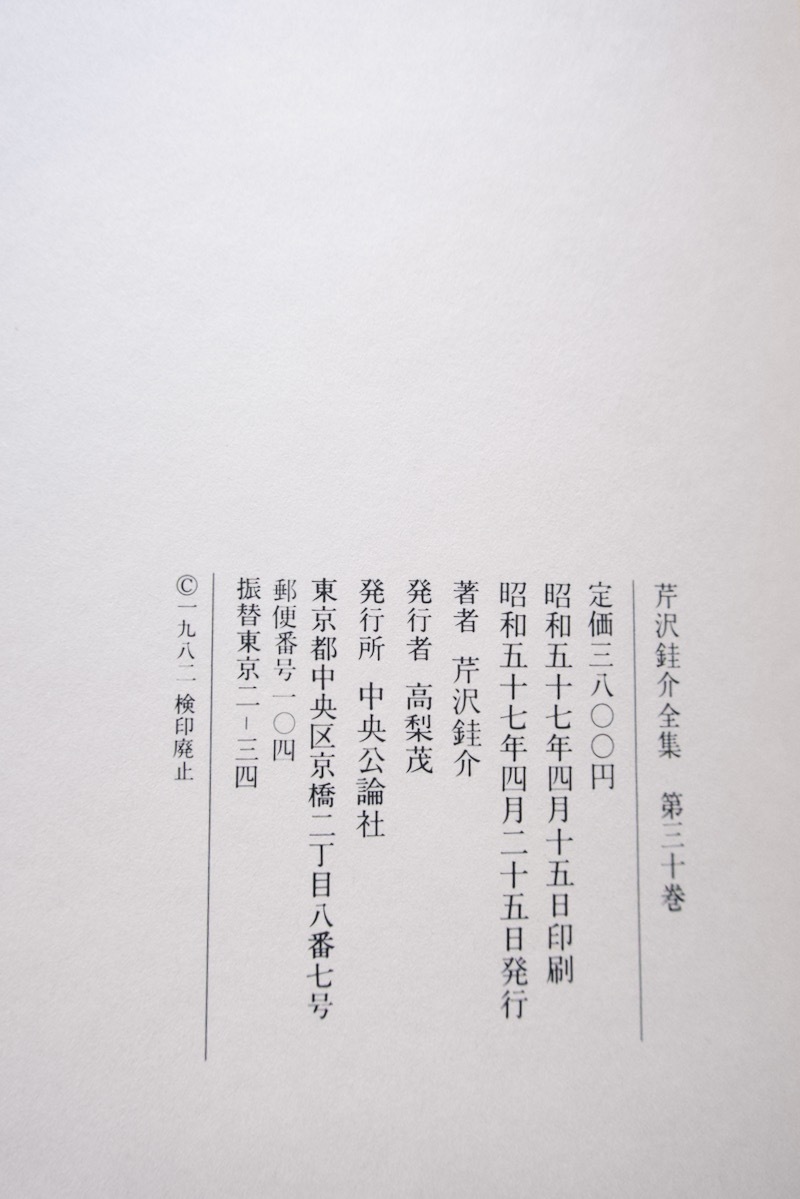 芹沢銈介全集　第三十巻
定価三八〇〇円
昭和五十七年四月十五日印刷
昭和五十七年四月二十五日発行
著者　芹沢銈介
発行者　高梨茂
発行所　中央公論社
東京都中央区京橋二丁目八番七号
郵便番号一〇四
振替東京二－三四
©一九八二　検印廃止